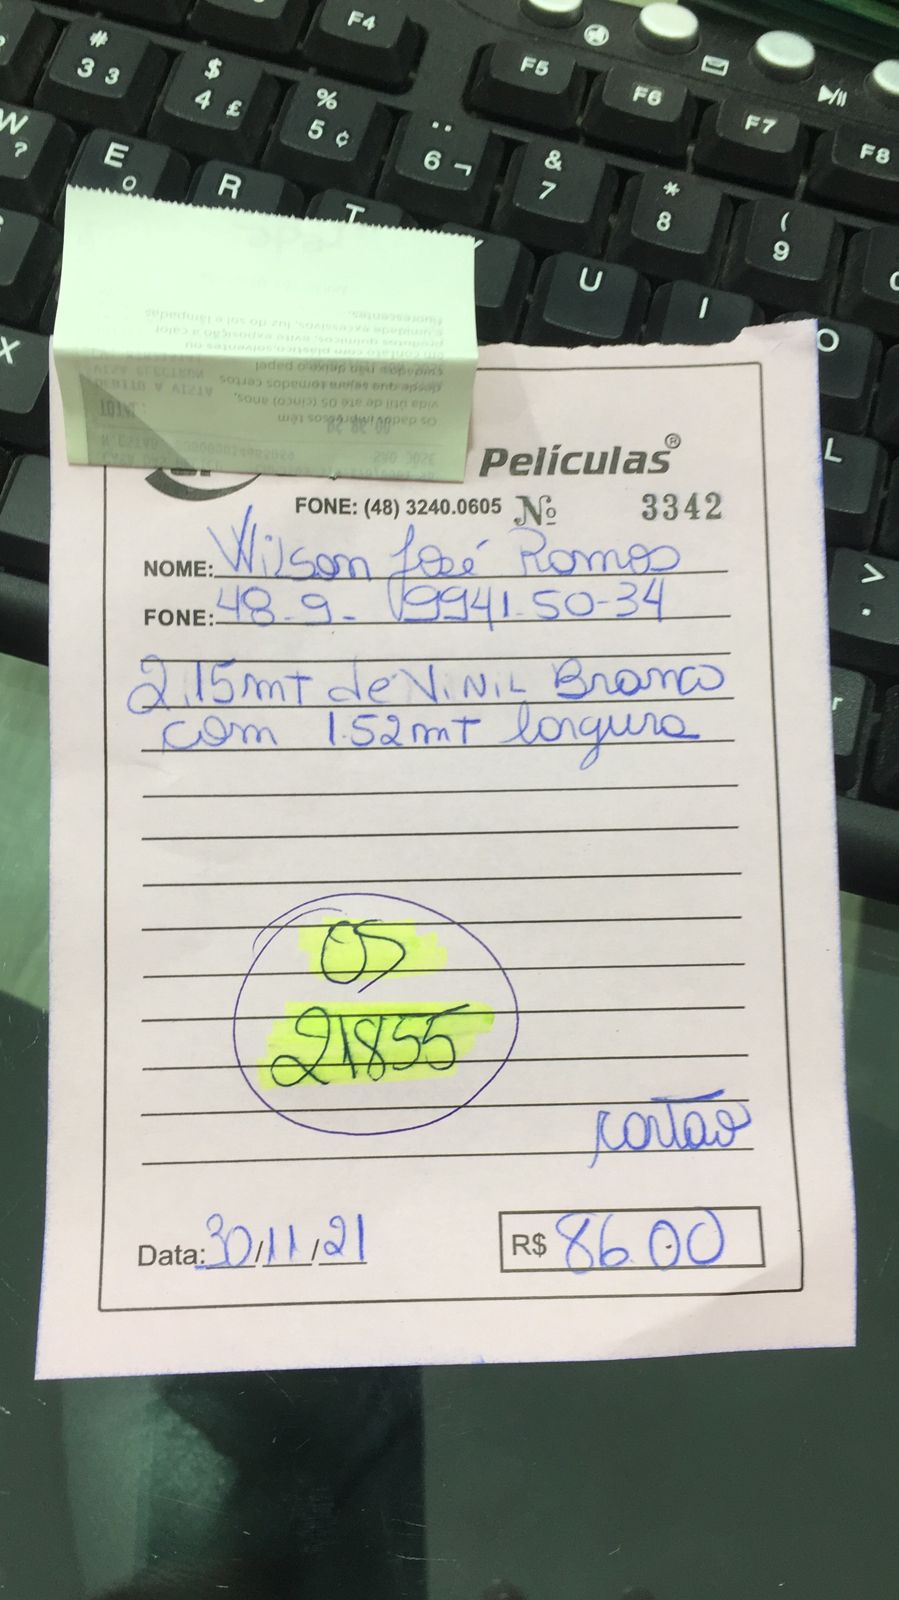 F4
# 3 3
$ 4 £
% 5 ¢
¨ 6 ¬
& 7
* 8
( 9
F5
F6
F7
F8
W ?
E
R
T
U
I
O
X
L
> .
Os dados impressos têm
vida útil de até 05 (cinco) anos,
desde que sejam tomados certos
cuidados não deixe o papel
em contato com plástico, solventes ou
produtos químicos, evite exposição a calor
e umidade excessivos, luz do sol e lâmpadas
fluorescentes.
VISA ELECTRON
DEBITO A VISTA
TOTAL:
SAO JOSE
Películas®
FONE: (48) 3240.0605 Nº 3342
NOME: Wilson José Ramos
FONE: 48-9- 9941.50-34
2,15mt de Vinil Branco
com 1.52mt largura
OS
21855
cartão
Data: 30/11/21 R$ 86.00